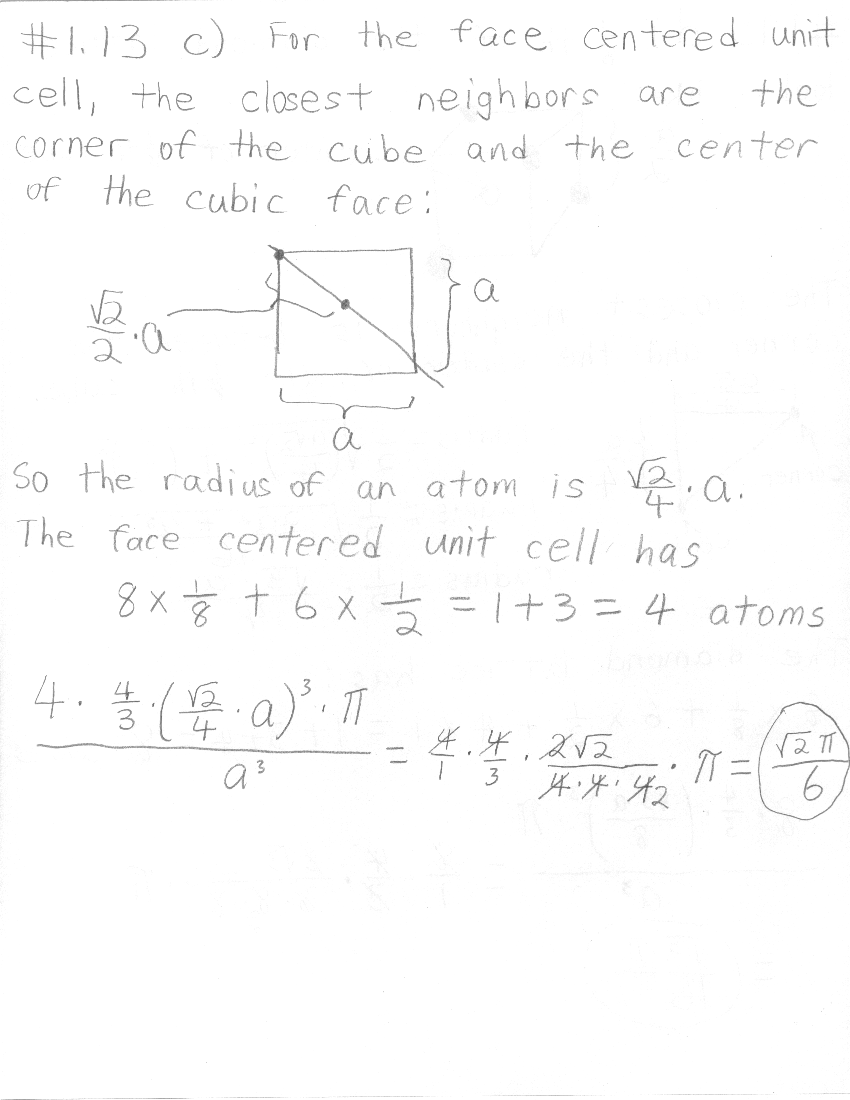 #1.13 c) For the face centered unit
cell, the closest neighbors are the
corner of the cube and the center
of the cubic face:
√2/2 · a
a
a
So the radius of an atom is √2/4 · a.
The face centered unit cell has
8 × 1/8 + 6 × 1/2 = 1 + 3 = 4 atoms
4 · 4/3 · (√2/4 · a)³ · π / a³ = 4/1 · 4/3 · 2√2/(4·4·4 2) · π = √2 π/6